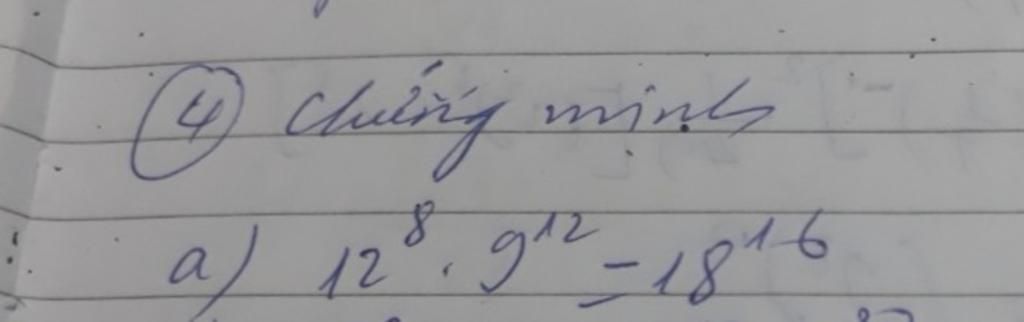 ④ Chứng minh
a) 12⁸ . 9¹² = 18¹⁶